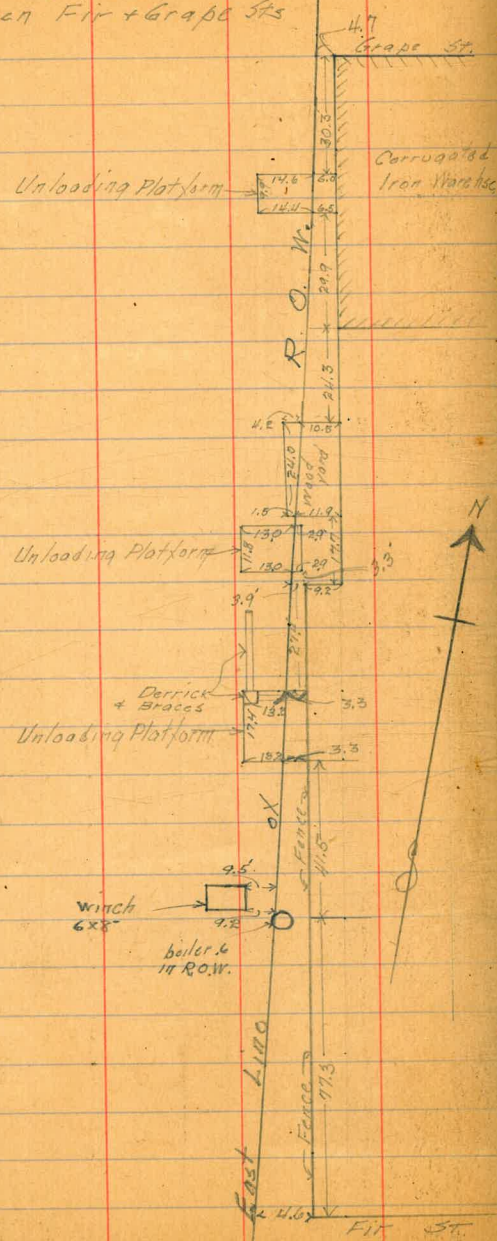 en Fir + Grape Sts
4.7
Grape St.
30.3
Corrugated
Iron Warehse
Unloading Platform
14.6
9.9
14.4 6.5
29.9
R. O. W.
24.3
4.2 10.8
24.0
Wood
yard
1.8 11.9
13.0 2.9
Unloading Platform
11.8
17.7
13.0 2.9
3.3'
9.2
3.9'
Derrick
& Braces
13.2
3.3
Unloading Platform
17.4
13.2 3.3
Fence
41.5
9.5'
Winch
6x8"
9.2
boiler .6
in R.O.W.
East Line
Fence
77.3
4.6
Fir St.
N